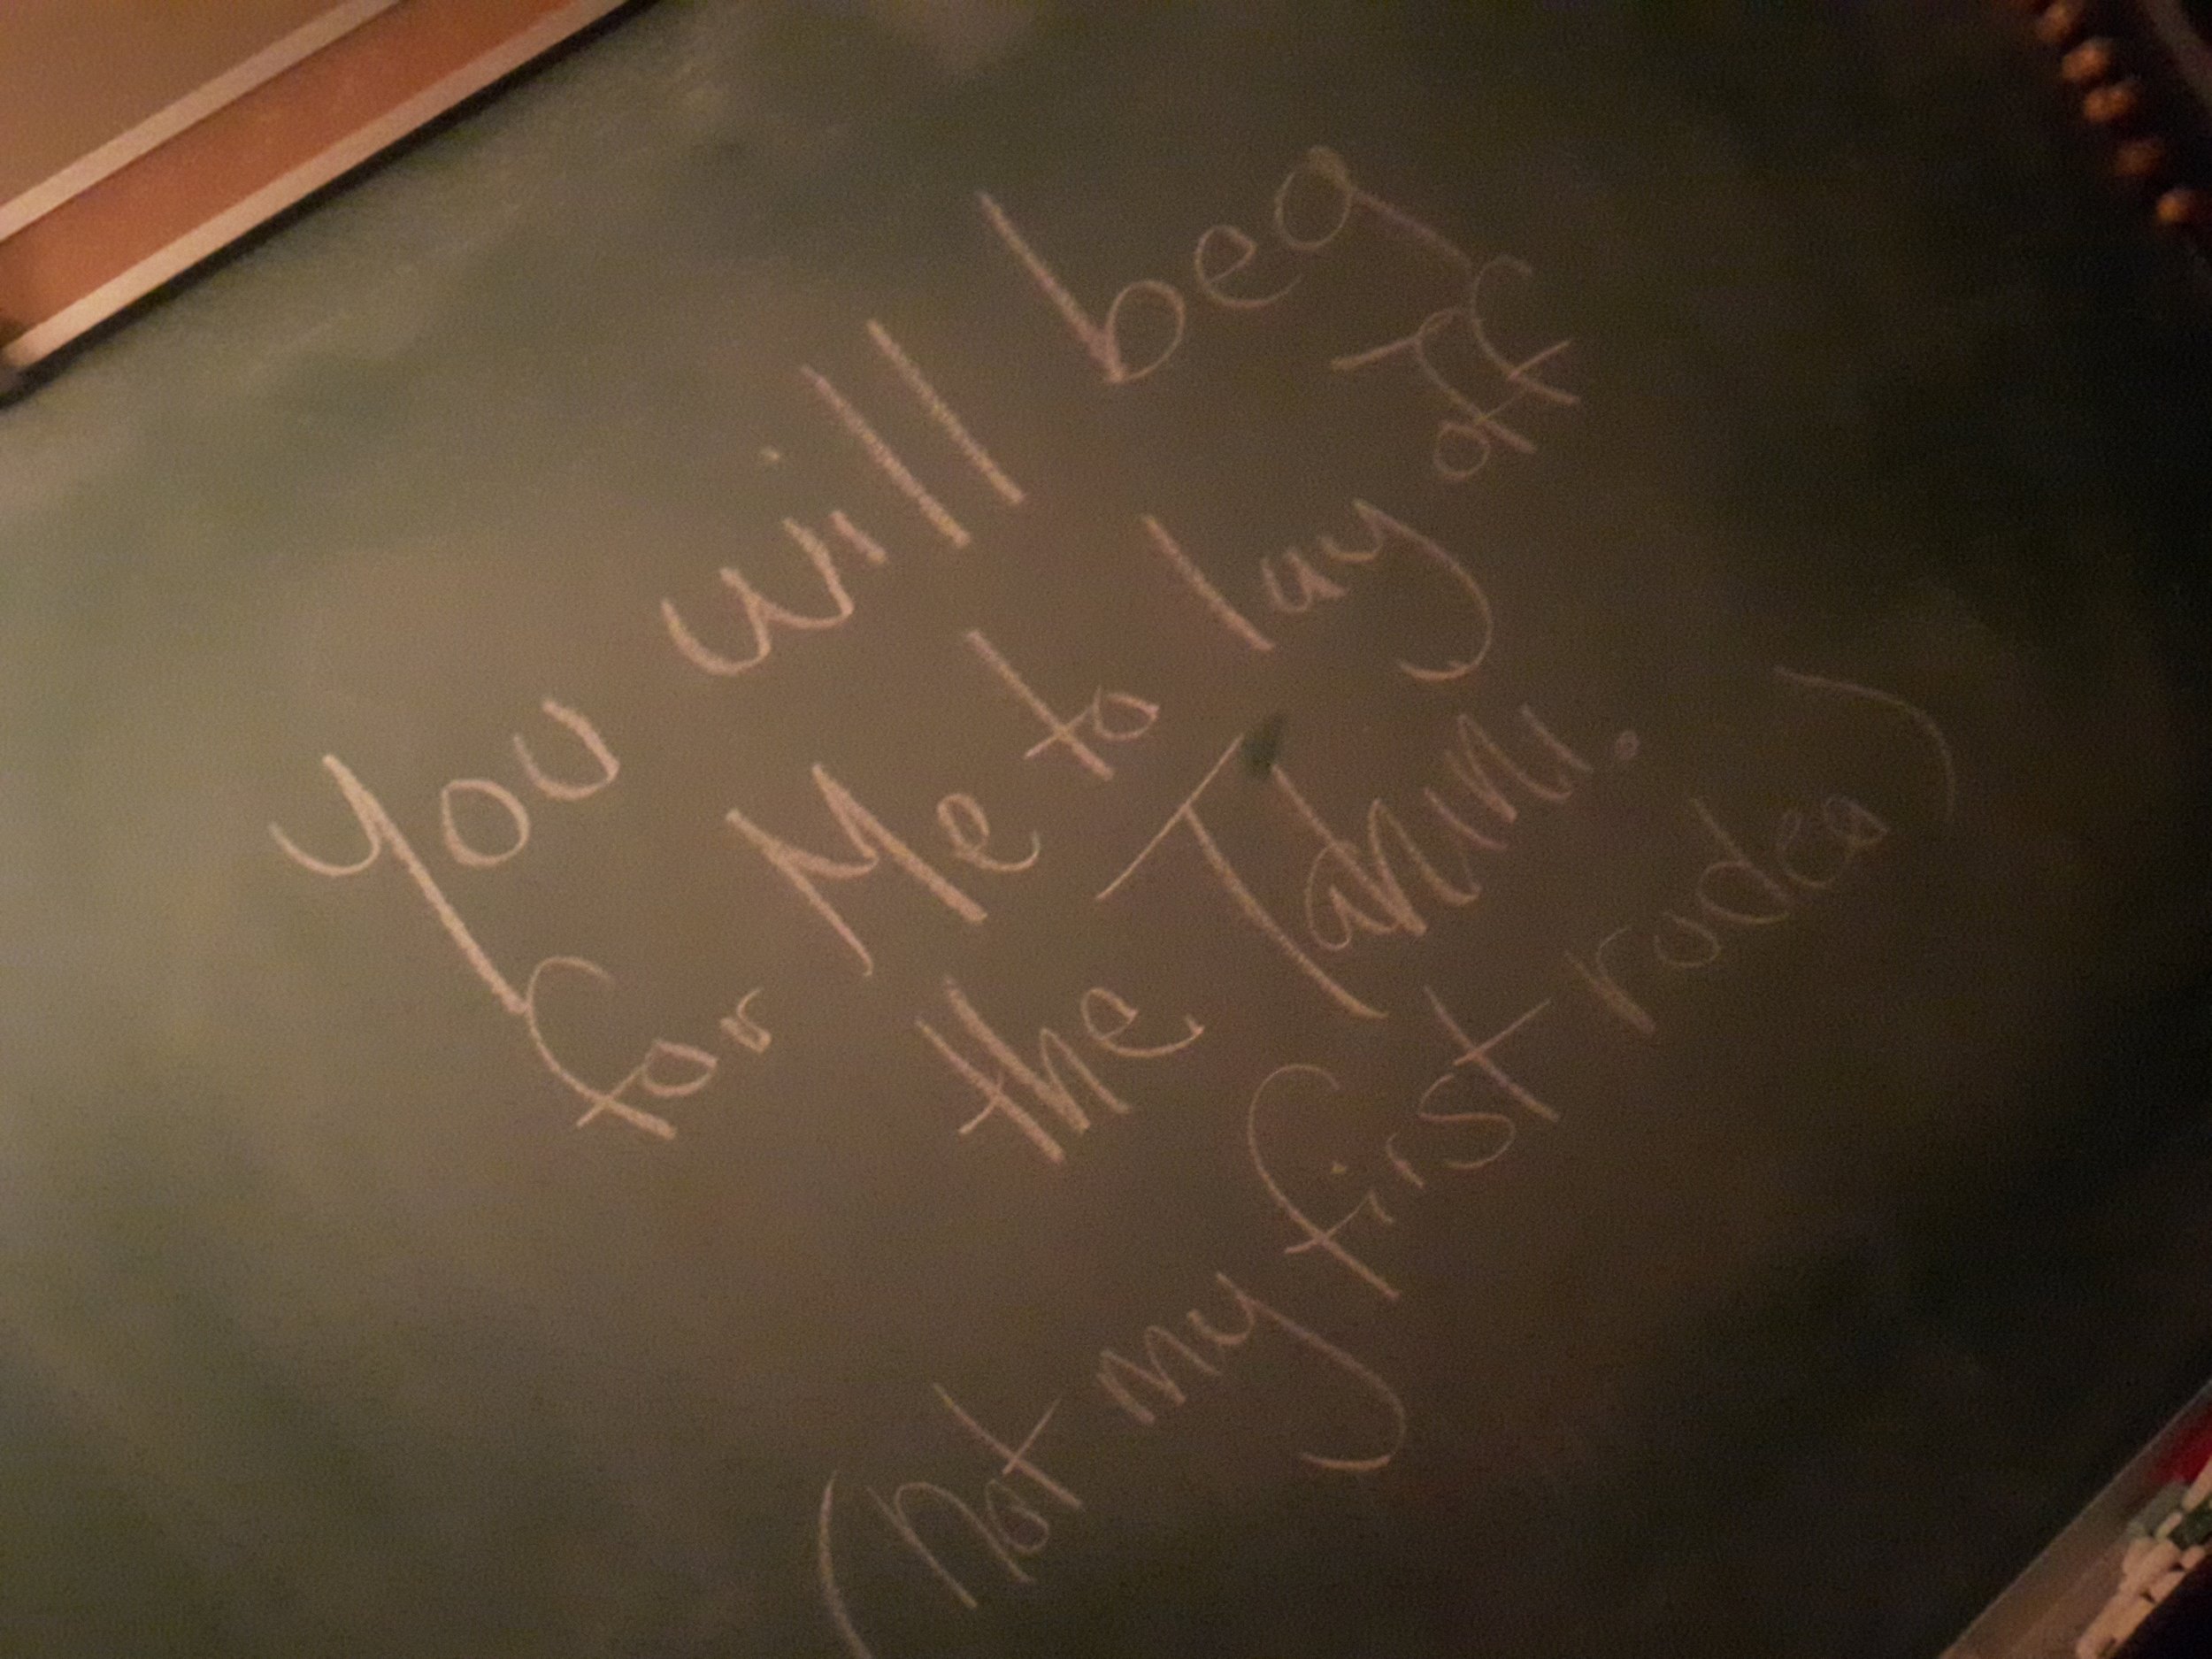 You will beg
for Me to lay off
the Tahini.
(not my first rodeo)